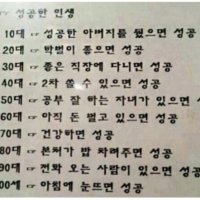 ☞ 성공한 인생
10대 - 성공한 아버지를 뒀으면 성공
20대 - 학벌이 좋으면 성공
30대 - 좋은 직장에 다니면 성공
40대 - 2차 쏠 수 있으면 성공
50대 - 공부 잘 하는 자녀가 있으면 성공
60대 - 아직 돈 벌고 있으면 성공
70대 - 건강하면 성공
80대 - 본처가 밥 차려주면 성공
90대 - 전화 오는 사람이 있으면 성공
00세 - 아침에 눈뜨면 성공